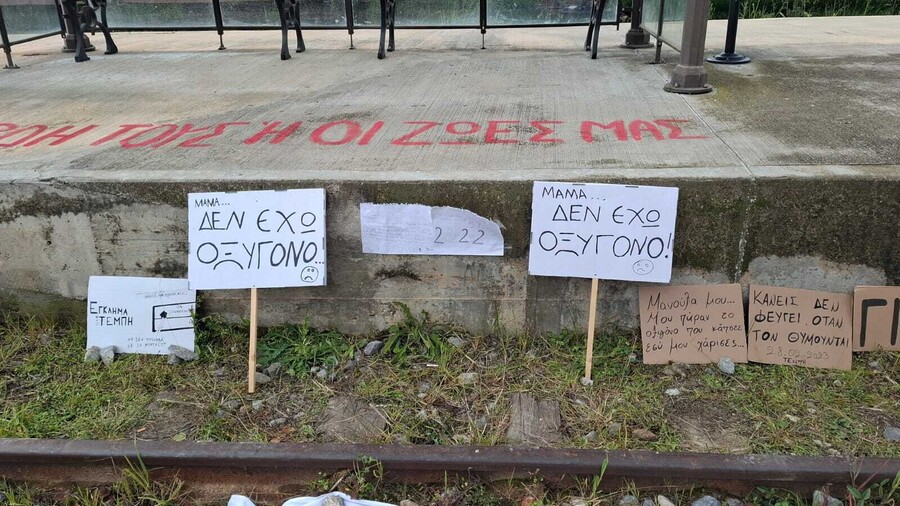 ΤΟΥΣ Ή ΟΙ ΖΩΕΣ ΜΑΣ
ΜΑΜΑ...
ΔΕΝ ΕΧΩ
ΟΞΥΓΟΝΟ..
2 22
ΜΑΜΑ...
ΔΕΝ ΕΧΩ
ΟΞΥΓΟΝΟ!
ΕΓΚΛΗΜΑ
ΣΤΑ ΤΕΜΠΗ
Μανούλα μου...
Μου πήραν το
οξυγόνο που κάποτε
εσύ μου χάρισες...
ΚΑΝΕΙΣ ΔΕΝ
ΦΕΥΓΕΙ ΟΤΑΝ
ΤΟΝ ΘΥΜΟΥΝΤΑΙ
28.02.2023
ΤΕΜΠΗ